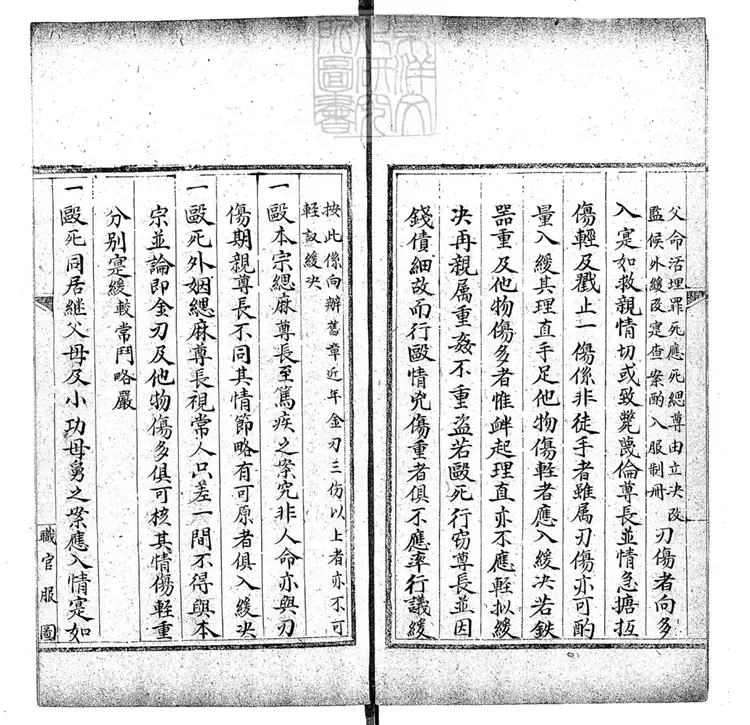 父命活埋罪死應死緦尊由立決改
監候外緩改寔查案酌入服制冊
刃傷者向多
入寔如救親情切或致斃蔑倫尊長並情急搪抵
傷輕及戳止一傷係非徒手者雖属刃傷亦可酌
量入緩其理直手足他物傷輕者應入緩决若鉄
器重及他物傷多者惟衅起理直亦不應輕拟緩
决再親属重姦不重盜若毆死行窃尊長並因
錢債細故而行毆情兇傷重者俱不應率行議緩
按此係向辦舊章近年金刃三伤以上者亦不可
輕议緩决
一毆本宗緦麻尊長至篤疾之案究非人命亦與刃
傷期親尊長不同其情節略有可原者俱入緩决
一毆死外姻緦麻尊長視常人只差一間不得與本
宗並論即金刃及他物傷多俱可核其情傷輕重
分别寔緩較常鬥略嚴
一毆死同居繼父母及小功母舅之案應入情寔如
職官服圖
東洋文
化研究
所圖書